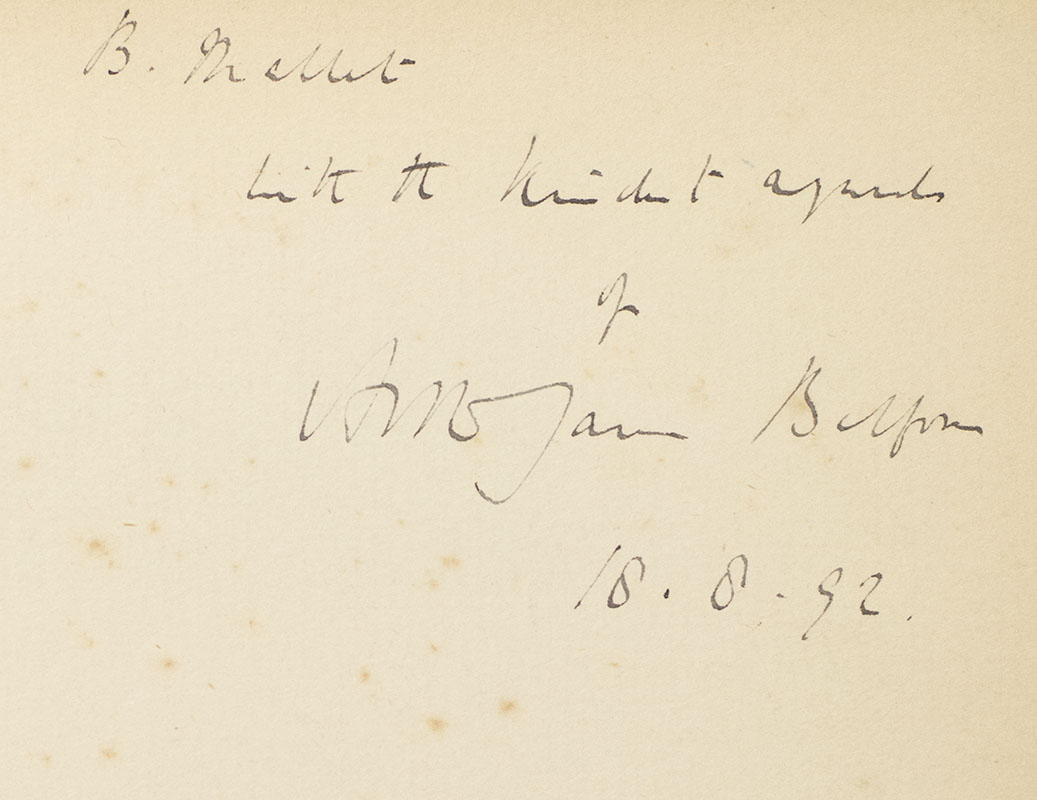 B. Mallet
with the kindest regards
of
Arthur James Balfour
18. 8. 92.